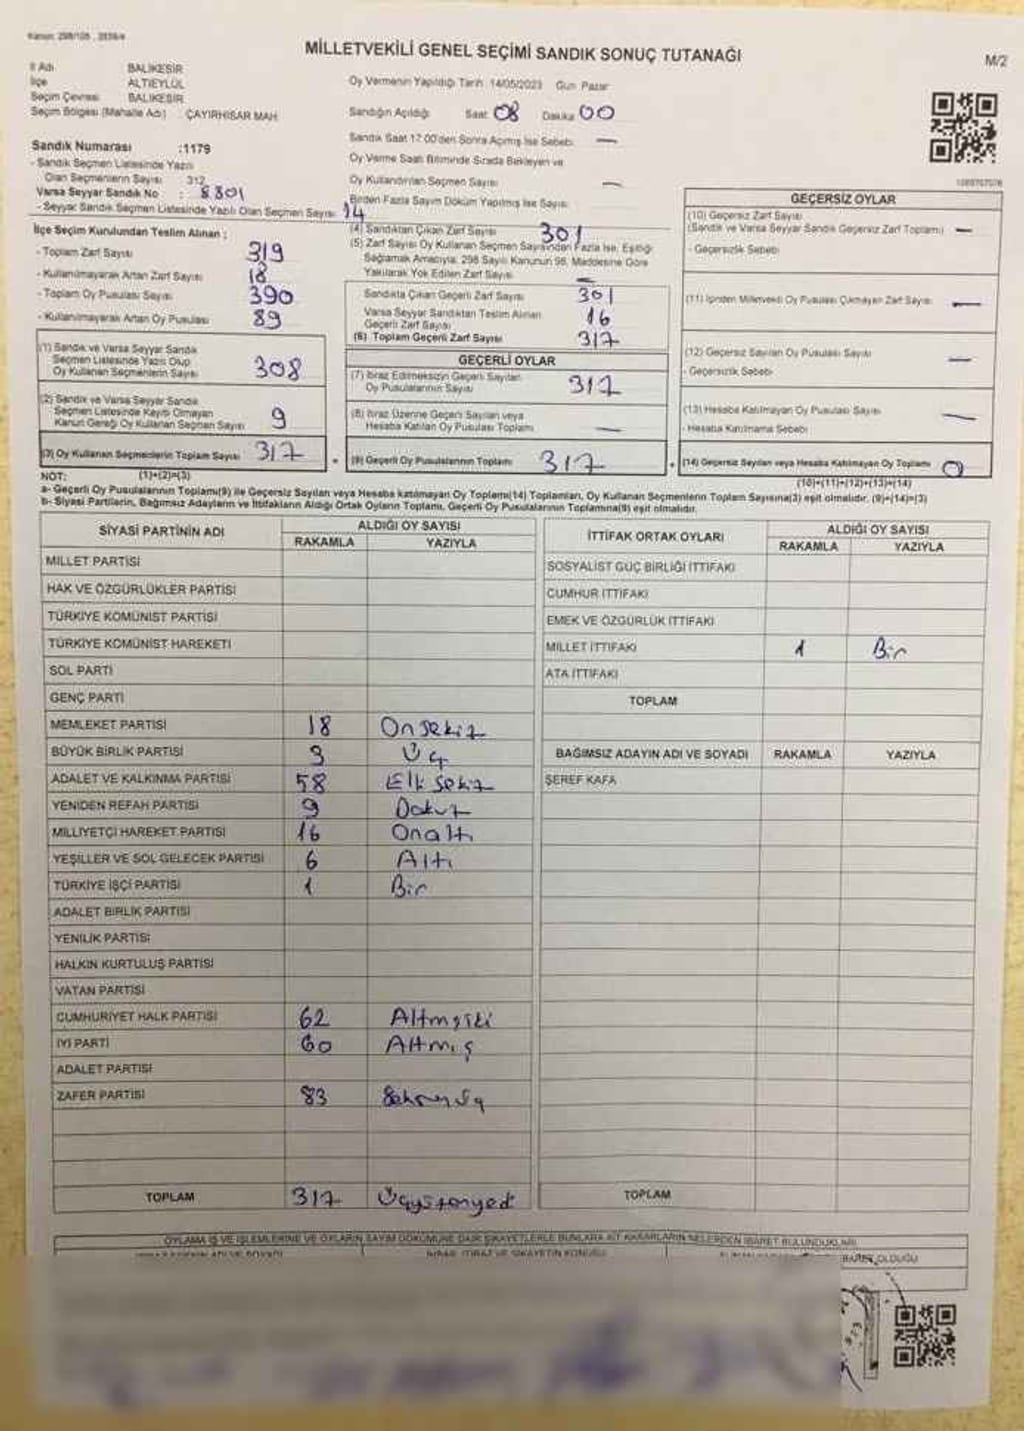 Kanun: 298/105 , 2839/4
MİLLETVEKİLİ GENEL SEÇİMİ SANDIK SONUÇ TUTANAĞI
M/2
İl Adı BALIKESİR
İlçe ALTIEYLÜL
Seçim Çevresi BALIKESİR
Seçim Bölgesi (Mahalle Adı) : ÇAYIRHİSAR MAH.
Oy Vermenin Yapıldığı Tarih: 14/05/2023 Gün: Pazar
Sandığın Açıldığı Saat: 08 Dakika 00
Sandık Saat 17:00'den Sonra Açılmış İse Sebebi: —
Oy Verme Saati Bitiminde Sırada Bekleyen ve
Oy Kullandırılan Seçmen Sayısı —
Birden Fazla Sayım Döküm Yapılmış İse Sayısı:
Sandık Numarası :1179
- Sandık Seçmen Listesinde Yazılı
Olan Seçmenlerin Sayısı 312
Varsa Seyyar Sandık No : 8801
- Seyyar Sandık Seçmen Listesinde Yazılı Olan Seçmen Sayısı 14
İlçe Seçim Kurulundan Teslim Alınan :
- Toplam Zarf Sayısı 319
- Kullanılmayarak Artan Zarf Sayısı 18
- Toplam Oy Pusulası Sayısı 390
- Kullanılmayarak Artan Oy Pusulası 89
(1) Sandık ve Varsa Seyyar Sandık
Seçmen Listesinde Yazılı Olup
Oy Kullanan Seçmenlerin Sayısı 308
(2) Sandık ve Varsa Seyyar Sandık
Seçmen Listesinde Kaydı Olmayan
Kanun Gereği Oy Kullanan Seçmen Sayısı 9
(3) Oy Kullanan Seçmenlerin Toplam Sayısı 317
(4) Sandıktan Çıkan Zarf Sayısı 301
(5) Zarf Sayısı Oy Kullanan Seçmen Sayısından Fazla İse, Eşitliği
Sağlamak Amacıyla, 298 Sayılı Kanunun 98. Maddesine Göre
Yakılarak Yok Edilen Zarf Sayısı —
Sandıkta Çıkan Geçerli Zarf Sayısı 301
Varsa Seyyar Sandıktan Teslim Alınan
Geçerli Zarf Sayısı 16
(6) Toplam Geçerli Zarf Sayısı 317
GEÇERLİ OYLAR
(7) İtiraz Edilmeksizin Geçerli Sayılan
Oy Pusulalarının Sayısı 317
(8) İtiraz Üzerine Geçerli Sayılan veya
Hesaba Katılan Oy Pusulası Toplamı —
(9) Geçerli Oy Pusulalarının Toplamı 317
GEÇERSİZ OYLAR
(10) Geçersiz Zarf Sayısı
(Sandık ve Varsa Seyyar Sandık Geçersiz Zarf Toplamı) —
- Geçersizlik Sebebi
(11) İçinden Milletvekili Oy Pusulası Çıkmayan Zarf Sayısı —
(12) Geçersiz Sayılan Oy Pusulası Sayısı —
- Geçersizlik Sebebi
(13) Hesaba Katılmayan Oy Pusulası Sayısı —
- Hesaba Katılmama Sebebi
(14) Geçersiz Sayılan veya Hesaba Katılmayan Oy Toplamı 0
NOT: (1)+(2)=(3) (10)+(11)+(12)+(13)=(14)
a- Geçerli Oy Pusulalarının Toplamı(9) ile Geçersiz Sayılan veya Hesaba katılmayan Oy Toplamı(14) Toplamları, Oy Kullanan Seçmenlerin Toplam Sayısına(3) eşit olmalıdır. (9)+(14)=(3)
b- Siyasi Partilerin, Bağımsız Adayların ve İttifakların Aldığı Ortak Oyların Toplamı, Geçerli Oy Pusulalarının Toplamına(9) eşit olmalıdır.
SİYASİ PARTİNİN ADI ALDIĞI OY SAYISI
RAKAMLA YAZIYLA
MİLLET PARTİSİ
HAK VE ÖZGÜRLÜKLER PARTİSİ
TÜRKİYE KOMÜNİST PARTİSİ
TÜRKİYE KOMÜNİST HAREKETİ
SOL PARTİ
GENÇ PARTİ
MEMLEKET PARTİSİ 18 Onsekiz
BÜYÜK BİRLİK PARTİSİ 3 Üç
ADALET VE KALKINMA PARTİSİ 58 Elli sekiz
YENİDEN REFAH PARTİSİ 9 Dokuz
MİLLİYETÇİ HAREKET PARTİSİ 16 Onaltı
YEŞİLLER VE SOL GELECEK PARTİSİ 6 Altı
TÜRKİYE İŞÇİ PARTİSİ 1 Bir
ADALET BİRLİK PARTİSİ
YENİLİK PARTİSİ
HALKIN KURTULUŞ PARTİSİ
VATAN PARTİSİ
CUMHURİYET HALK PARTİSİ 62 Altmışiki
İYİ PARTİ 60 Altmış
ADALET PARTİSİ
ZAFER PARTİSİ 83 Seksenüç
TOPLAM 317 Üçyüzonyedi
İTTİFAK ORTAK OYLARI ALDIĞI OY SAYISI
RAKAMLA YAZIYLA
SOSYALİST GÜÇ BİRLİĞİ İTTİFAKI
CUMHUR İTTİFAKI
EMEK VE ÖZGÜRLÜK İTTİFAKI
MİLLET İTTİFAKI 1 Bir
ATA İTTİFAKI
TOPLAM
BAĞIMSIZ ADAYIN ADI VE SOYADI RAKAMLA YAZIYLA
ŞEREF KAFA
TOPLAM
OYLAMA İŞ VE İŞLEMLERİNE VE OYLARIN SAYIM DÖKÜMÜNE DAİR ŞİKAYETLERLE BUNLARA AİT KARARLARIN NELERDEN İBARET BULUNDUKLARI